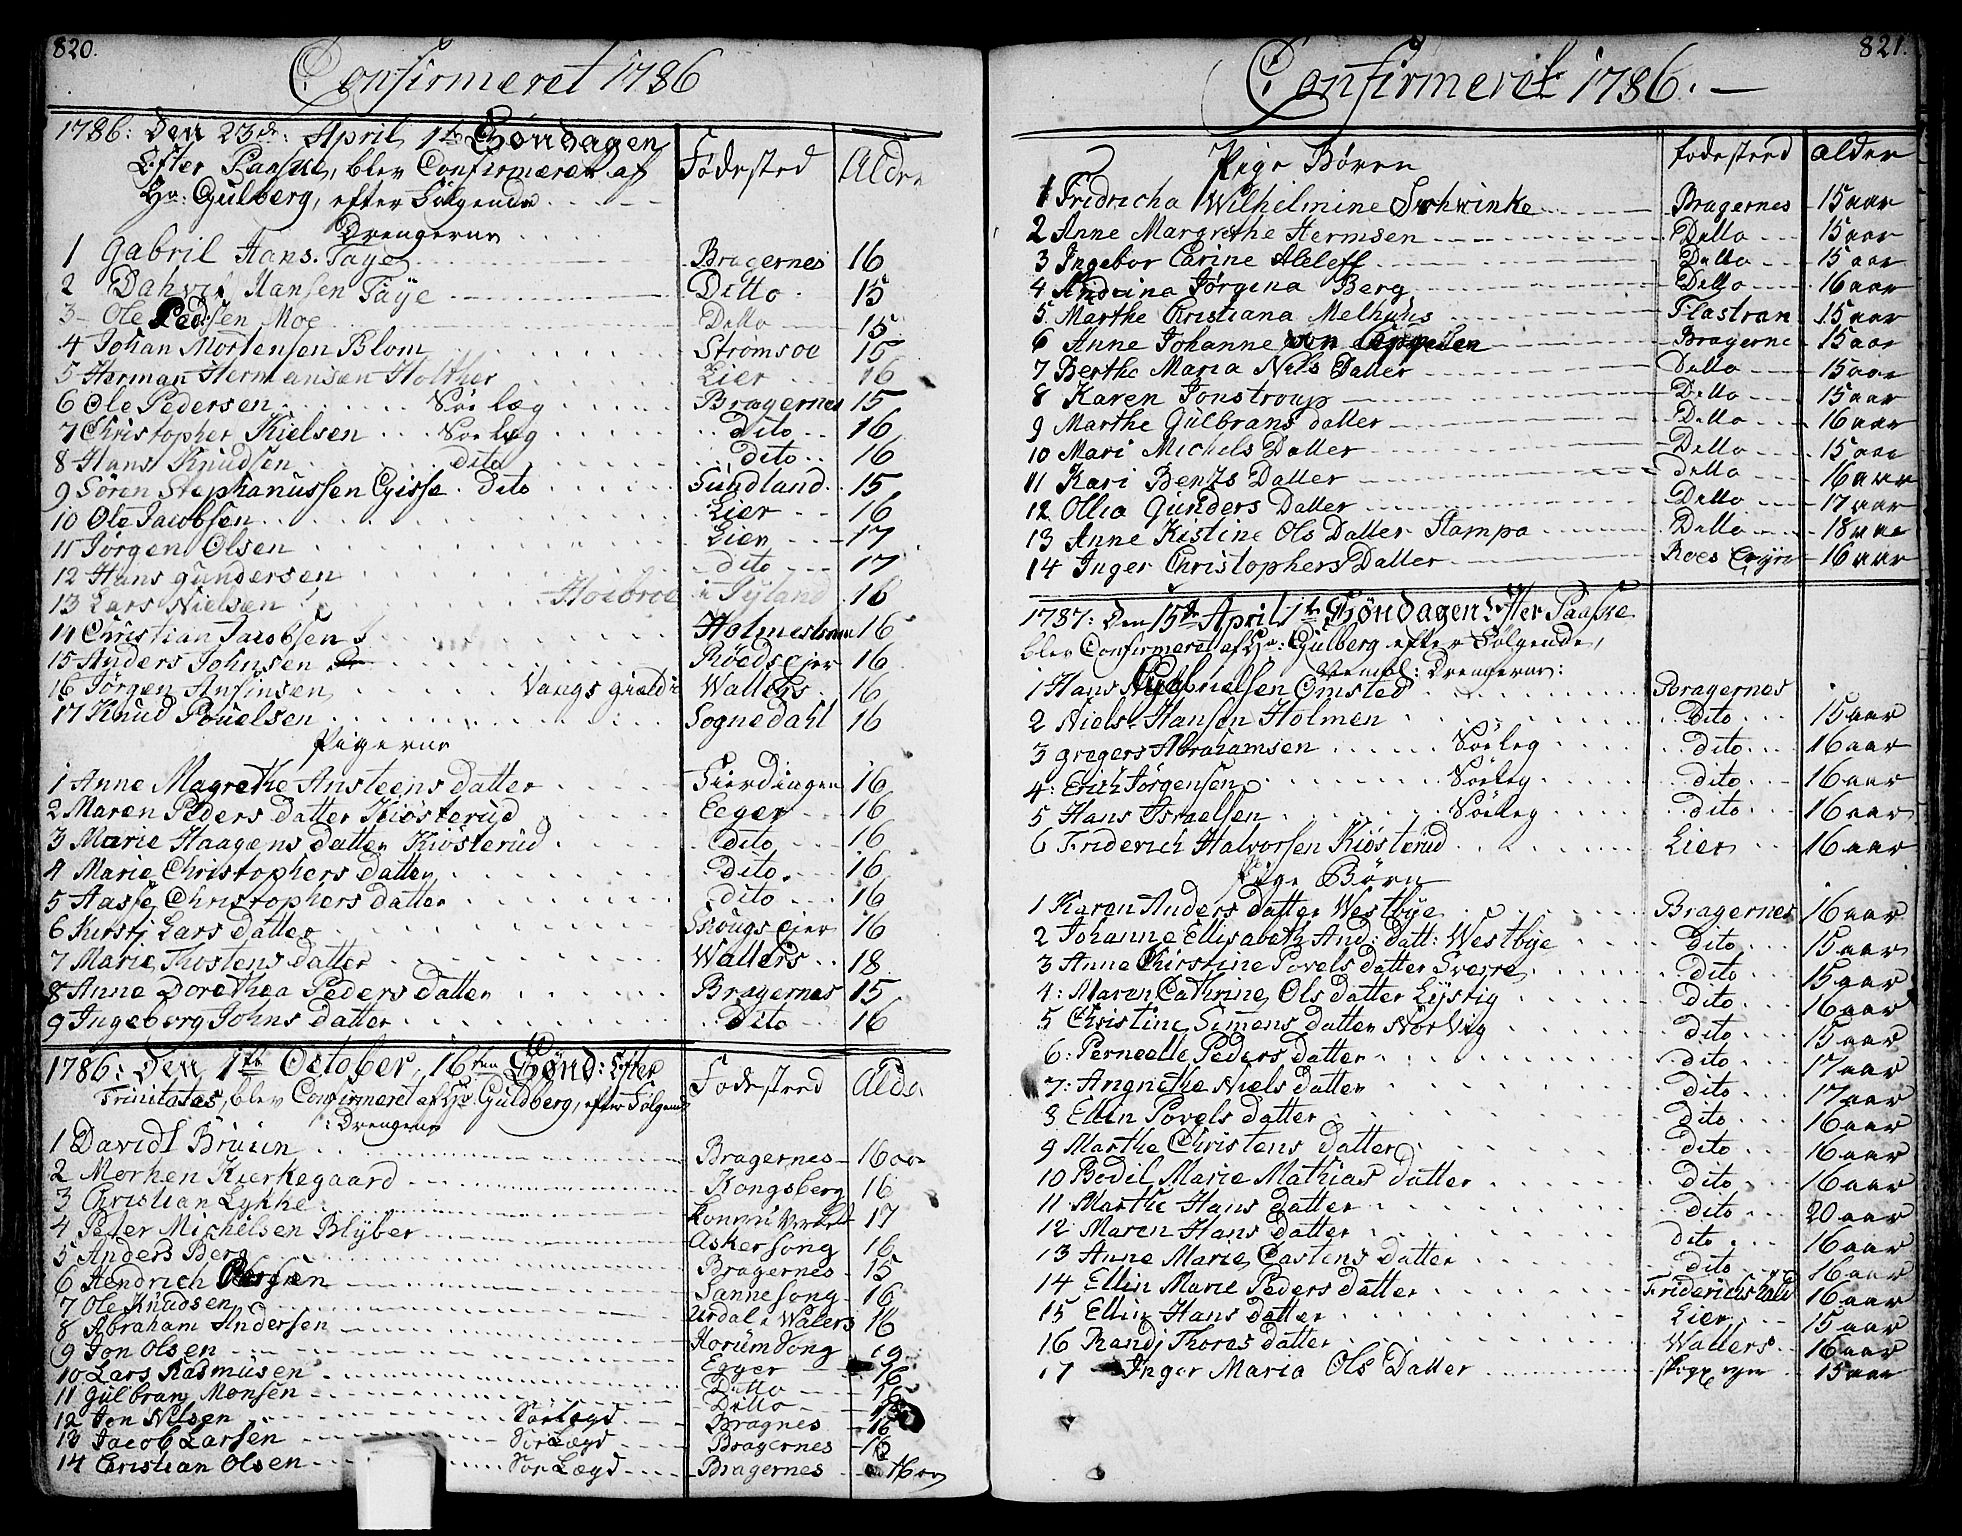 820.
Confirmeret 1786
1786: Den 23de: April, 1te Søndagen
Efter Paaske, blev Confirmeret af
Hr: Gulberg, efter Følgende
Fødested
Alder
Drengerne
1 Gabril Hans. Faye Bragernes 16
2 Dahvid Hansen Faÿe Ditto 15
3 Ole Pedersen Moe Ditto 15
4 Johan Mortensen Blom Strømsoe 15
5 Herman Hermansen Holther Lier 16
6 Ole Pedersen Søe læg Bragernes 15
7 Christopher Kielsen Søe læg Dito 16
8 Hans Knudsen dito dito 16
9 Søren Stephanussen Gisse dito Sundland 15
10 Ole Jacobsen Lier 16
11 Jørgen Olsen Lier 17
12 Hans gundersen dito 17
13 Lars Nielsen Hoebroe i Jÿland 16
14 Christian Jacobsen Holmestrand 16
15 Anders Johnsen Røeds ejer 16
16 Jørgen Ansinsen Vangs gield i Wallers 16
17 Knud Pouelsen Sognedahl 16
Pigerne
1 Anne Magrethe Ansteens datter Fierdingen 16
2 Maren Peders datter Kiøsterud Eeger 16
3 Marie Haagens datter Kiøsterud dito 16
4 Marie Christophers datter dito 16
5 Aasse Christophers datter dito 16
6 Kirstj Lars datter Skougs ejer 16
7 Marie Thostens datter Wallers 18
8 Anne Dorethea Peders datter Bragernes 15
9 Ingeborg Johns datter Dito 16
1786: Den 1te October, 16ten Sønd: Efter
Trinitates, blev Confirmeret af Hr: Guldberg, efter Følgende
Fodesteed
Alder
: Drengene
1 David Bruun Bragernes 16 aar
2 Morhen Kierkegaard Kongsberg 16
3 Christian Lykke 17
4 Peter Michelsen Blÿber Asker Song 16
5 Anders Berg Bragernes 15
6 Hendrich Sanne Song 16
7 Ole Knudsen Urdal i Walers 16
8 Abraham Andersen Horum Song 19
9 Jon Olsen Egger 16
10 Lars Rasmusen Ditto 16
11 Gulbran Monsen Ditto
12 Jon Nilsen Søelægd Bragnes 16
13 Jacob Larsen Søe Lægd Bragernes 16
14 Christian Olsen Søe Lægd Bragernes 16 aar
821.
Confirmeret 1786.
Pige Børen
fodesteed
alder
1 Fridricha Wilhelmine Schwinke Bragernes 15 aar
2 Anne Margrethe Hermsen Ditto 15 aar
3 Ingebor Carine Aleleff Ditto 15 aar
4 Andrina Jørgina Berg Ditto 16 aar
5 Marthe Christiana Melhuus Flastran 15 aar
6 Anne Johanne von Cappelen Bragerne 15 aar
7 Berthe Maria Nils Datter Ditto 15 aar
8 Karen Jonstroup Ditto 15 aar
9 Marthe Gulbrans datter Ditto 16 aar
10 Mari Michels Datter Ditto 15 aar
11 Kari Bentzs Datter Ditto 16 aar
12 Ollia Gunders Datter Ditto 17 aar
13 Anne Kistine Ols Datter Stampa Ditto 18 aar
14 Inger Christophers Datter Roes Eyre 16 aar
1787: Den 15de April 1te Søndagen Efter Paaske
blev Confirmeret af Hr: Gulberg efter Følgende,
Nembl: Drengerne:
1 Hans Gabrielsen Omsted Bragernes
2 Niels Hansen Holmen Dito 15 aar
3 gregers Abrahamsen Søeleg dito 16 aar
4: Erich Jørgensen Søeleg dito 16 aar
5 Hans Israelsen Søeleg dito 16 aar
6 Friderich Halvorsen Kiøsterud Lier 16 aar
Pige Børn
1 Karen Anders datter Westbÿe Bragernes 16 aar
2 Johanne Ellisabeth And: datt: Westbÿe Dito 15 aar
3 Anne Chirstine Povels datter Sverre dito 15 aar
4: Maren Cathrine Ols datter Lÿstig dito 16 aar
5 Christine Simens datter Norvig dito 15 aar
6: Perneelle Peders datter dito 17 aar
7: Angnethe Niels datter dito 17 aar
8 Ellin Povels datter dito 16 aar
9 Marthe Christens datter dito 16 aar
10 Bodil Marie Mathias datter dito 16 aar
11 Marthe Hans datter dito 20 aar
12 Maren Hans datter dito 16 aar
13 Anne Marie Castens datter dito 16 aar
14 Ellin Marie Peders datter Friderichshald 16 aar
15 Ellin Hans datter Lier 15 aar
16 Randj Thores datter Wallers 16 aar
17 Inger Maria Ols Datter 15 aar